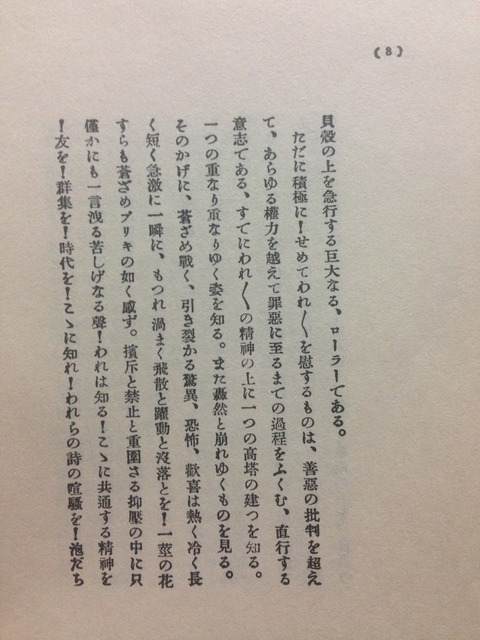 (8)
貝殼の上を急行する巨大なる、ローラーである。
ただに積極に！せめてわれ〳〵を慰するものは、善惡の批判を超え
て、あらゆる權力を越えて罪惡に至るまでの過程をふくむ、直行する
意志である、すでにわれ〳〵の精神の上に一つの高塔の建つを知る。
一つの重なり重なりゆく姿を知る。また轟然と崩れゆくものを見る。
そのかげに、蒼ざめ戰く、引き裂かる驚異、恐怖、歡喜は熱く冷く長
く短く急激に一瞬に、もつれ渦まく飛散と躍動と沒落とを！一莖の花
すらも蒼ざめブリキの如く感ず。擯斥と禁止と重圍さる抑壓の中に只
僅かにも一言洩る苦しげなる聲！われは知る！こゝに共通する精神を
！友を！群集を！時代を！こゝに知れ！われらの詩の喧騷を！泡だち